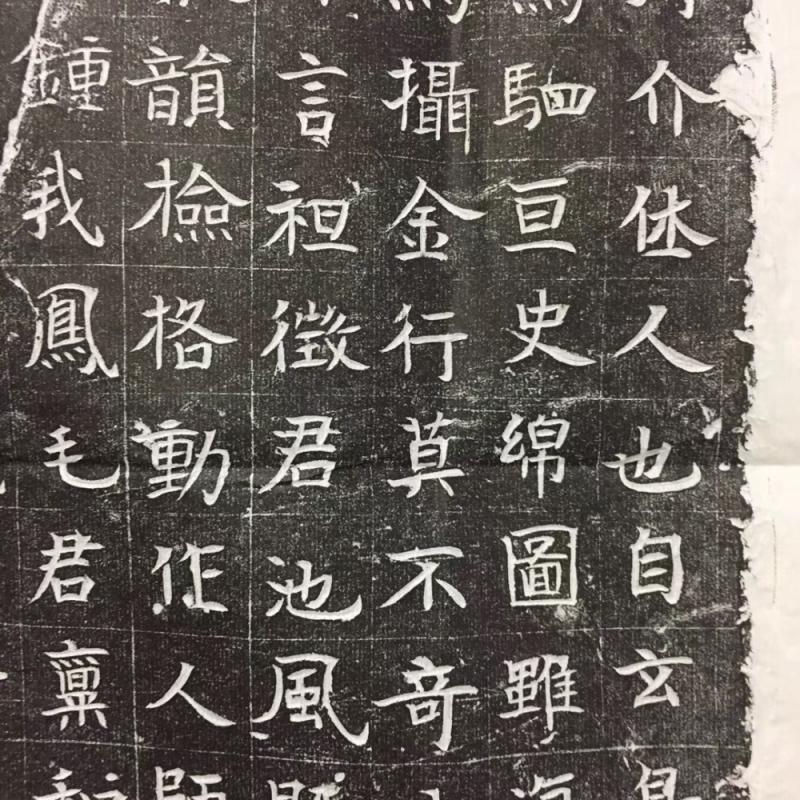 介休人也自玄
駟亘史綿圖雖
攝金行莫不奇
言祖徵君池風
韻檢格動作人師
鍾我鳳毛君稟